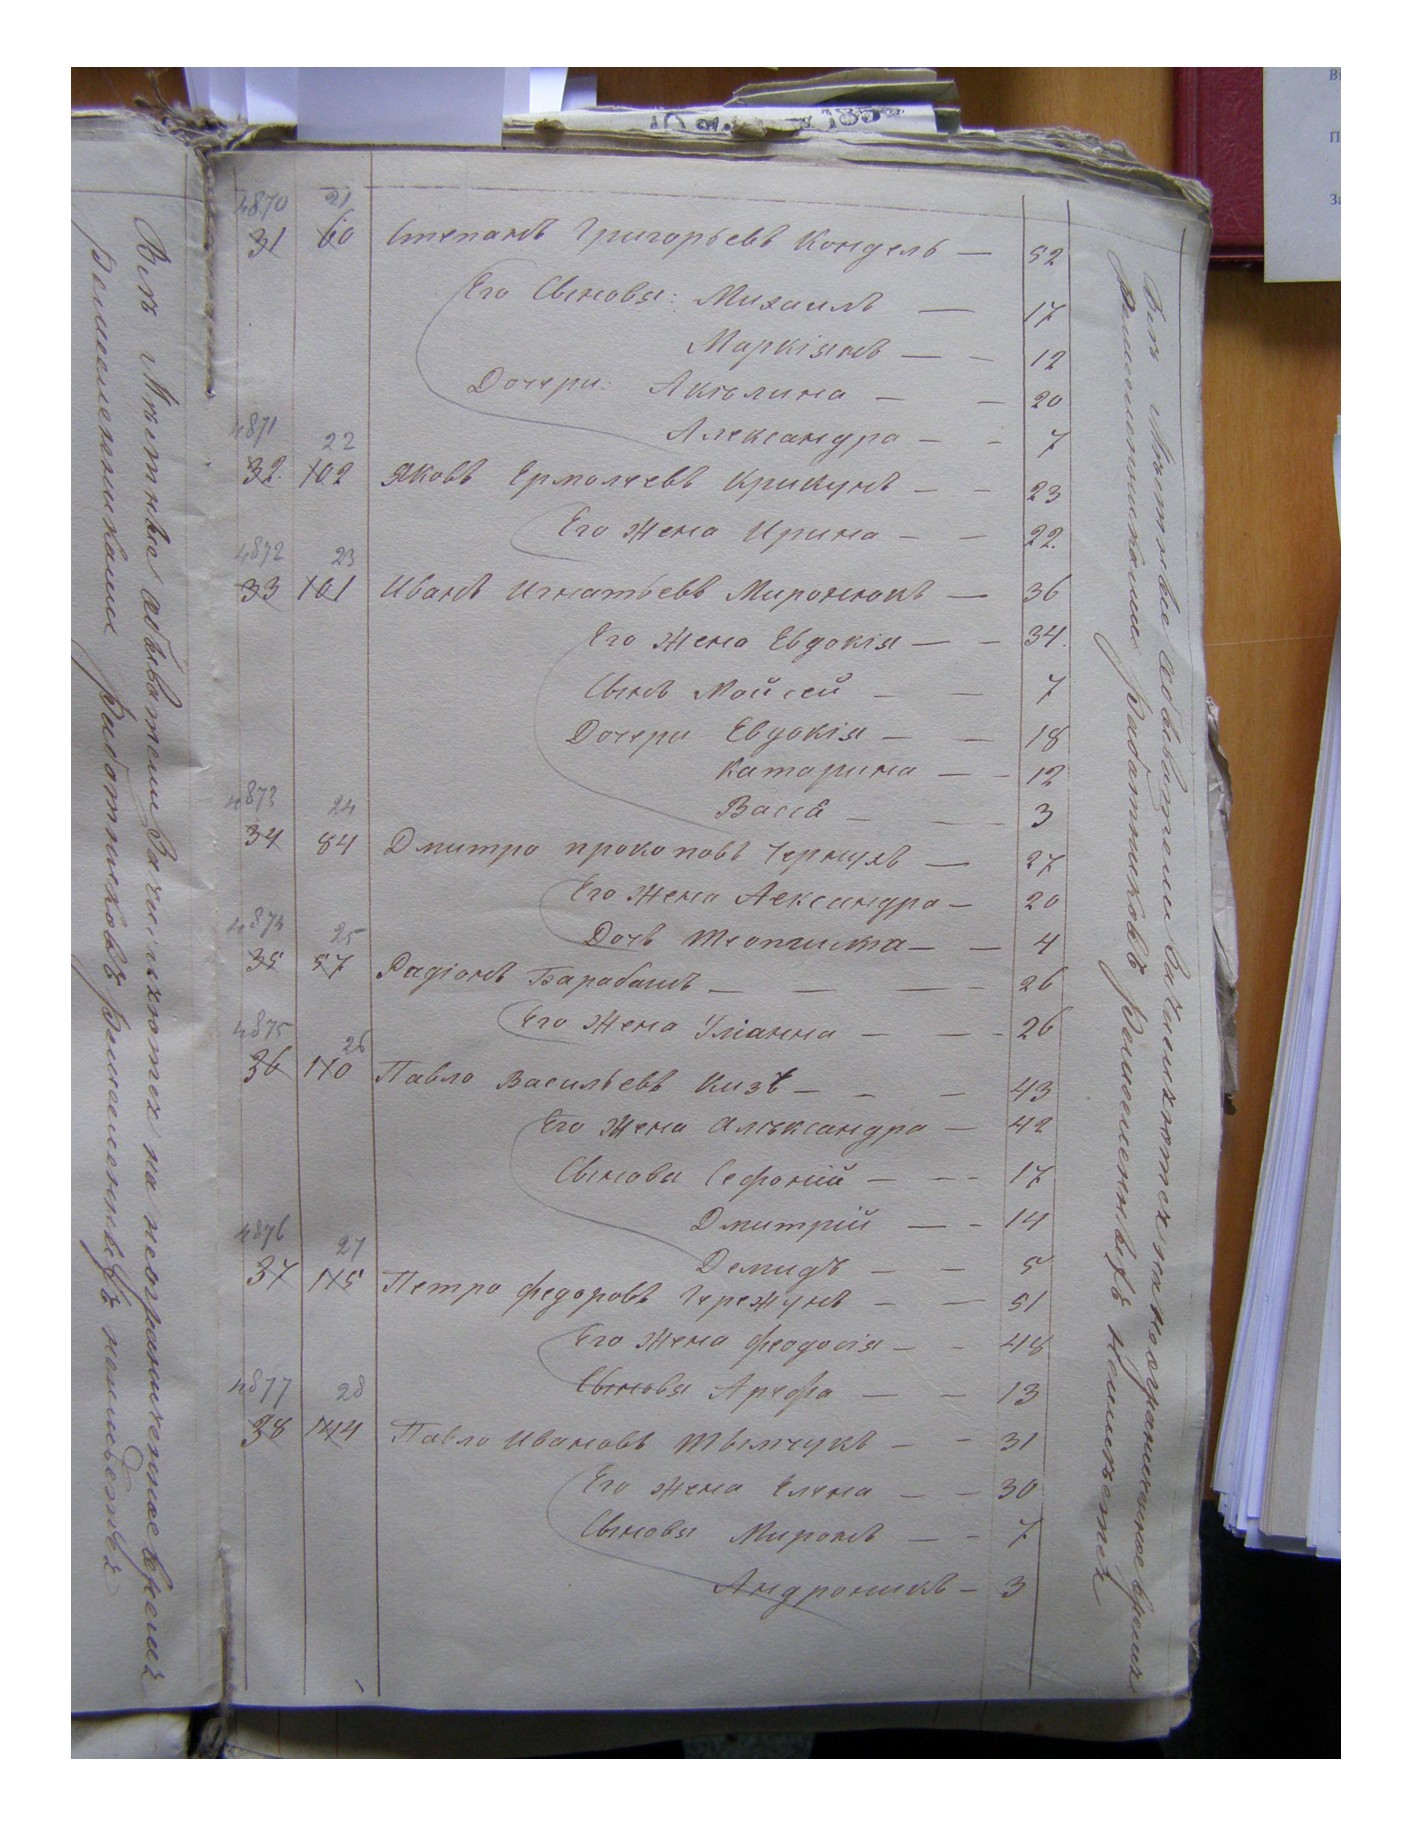 4870 21
31 60 Степанъ Григорьевъ Кондель — 52
Его Сыновья: Михаилъ — 17
Маркіянъ — — 12
Дочери: Акилина — — 20
Александра — — 7
4871 22
32. 102 Яковъ Ермолаевъ Крикунъ — — 23
Его Жена Ирина — — 22.
4872 23
33 101 Иванъ Игнатьевъ Миронюкъ — 36
Его Жена Евдокія — — 34.
Сынъ Мойсей — — 7
Дочери Евдокія — — 18
Катарина — — 12
Васса — — 3
4873 24
34 84 Дмитро прокоповъ — 27
Его Жена Александра — 20
Дочь — — 4
4874 25
35 57 Радіонъ Барабашъ — — — — 26
Его Жена Уліанна — — — 26
4875 26
36 110 Павло Васильевъ Кизь — — — 43
Его Жена Алѣксандра — 42
Сыновья Софоній — — — 17
Дмитрій — — 14
Демидъ — — 5
4876 27
37 115 Петро Федоровъ Чережунъ — — 51
Его Жена Феодосія — — 48
Сыновья Арефа — — 13
4877 28
38 144 Павло Ивановъ Тымчукъ — — 31
Его жена Елена — — 30
Сыновья Миронъ — — 7
Андроникъ — 3
Всѣ Мѣстные обыватели Зачисляются на неограниченное время
Всѣ Мѣстные обыватели Зачисляются на неограниченное время
185